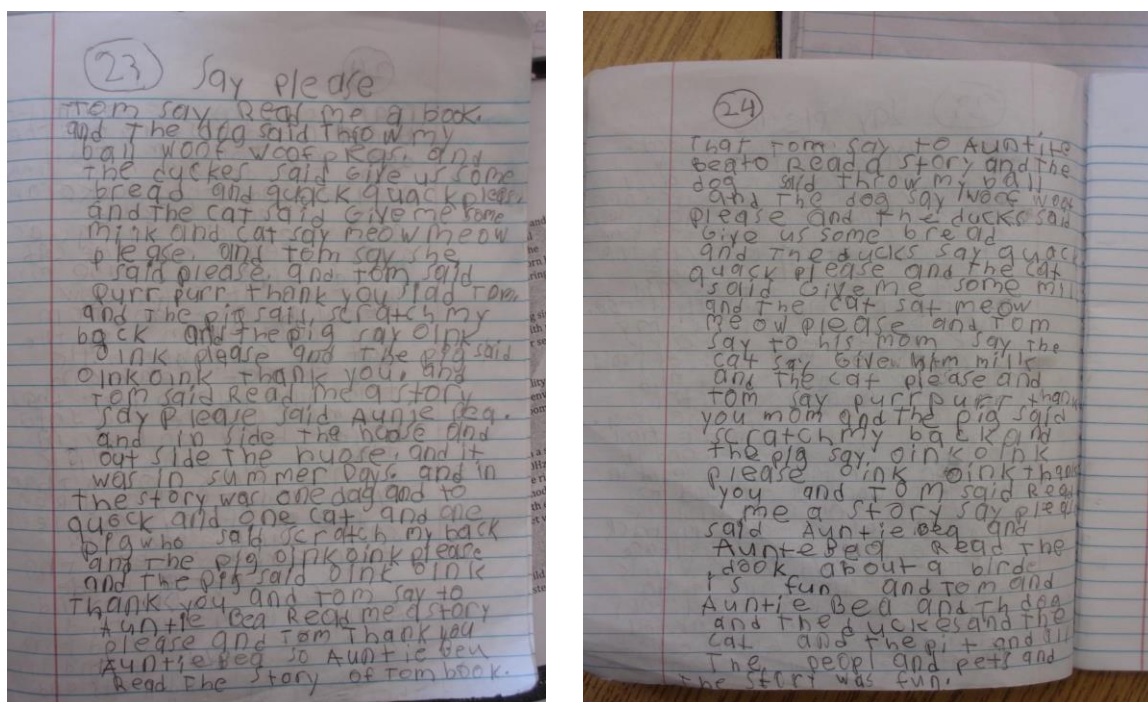 23
Say please
Tom say Read me a book.
and The dog said Throw my
ball woof woof pleas. and
The duckes said Give us some
bread and quack quack pleas.
and The cat said Give me some
milk and cat say meow meow
please. and Tom say she
said please. and Tom said
purr purr thank you siad Tom.
and The pig said, scratch my
back and the pig say oink
oink please and The pig said
oink oink thank you, and
Tom said Read me a story
say please said Auntie Bea.
and in side the huose and
out side the huose. and it
was in summer Days. and in
the story was one dog and to
quack and one cat and one
pig who said scratch my back
and The pig oink oink please
and The pig said oink oink
Thank you and Tom say to
Auntie Bea Read me a story
please and Tom Thank you
Auntie Bea so Auntie Bea
Read The Story of Tom book.
24
That Tom say to Auntite
Bea to Read a story and The
dog said throw my ball
and The dog say woof woof
please and The ducks said
Give us some bread
and The ducks say quack
quack please and the cat
said Give me some mil
and The cat sat meow
meow please and Tom
say to his mom say The
cat say Give him milk
and The cat please and
Tom say purr purr thank
you mom and the pig said
scratch my back and
the pig say oink oink
please oink oink thank
you and Tom said Read
me a story say pleas
said Auntie Bea and
Aunte Bea Read The
book about a birde
is fun and Tom and
Auntie Bea and Th dog
and The duckes and the
cat and The pit and all
The peopl and pets and
The story was fun.